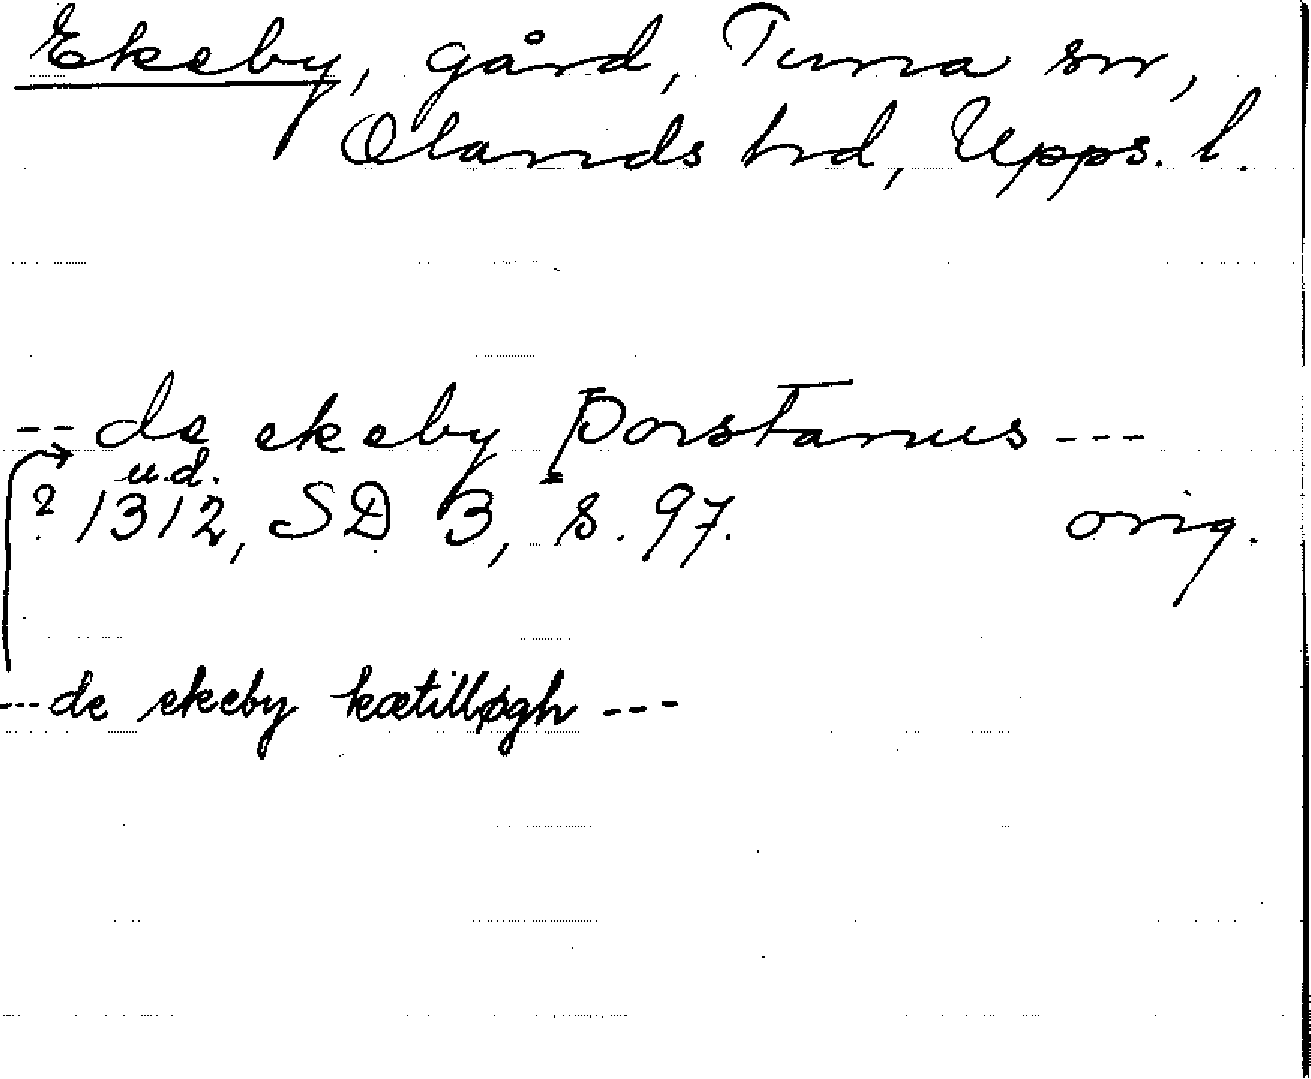 Ekeby, gård, Tuna sn,
Olands hd, Upps. l.
-- de ekeby þorstanus ---
u.d.
? 1312, SD 3, s. 97. orig.
--- de ekeby kætilløgh ---